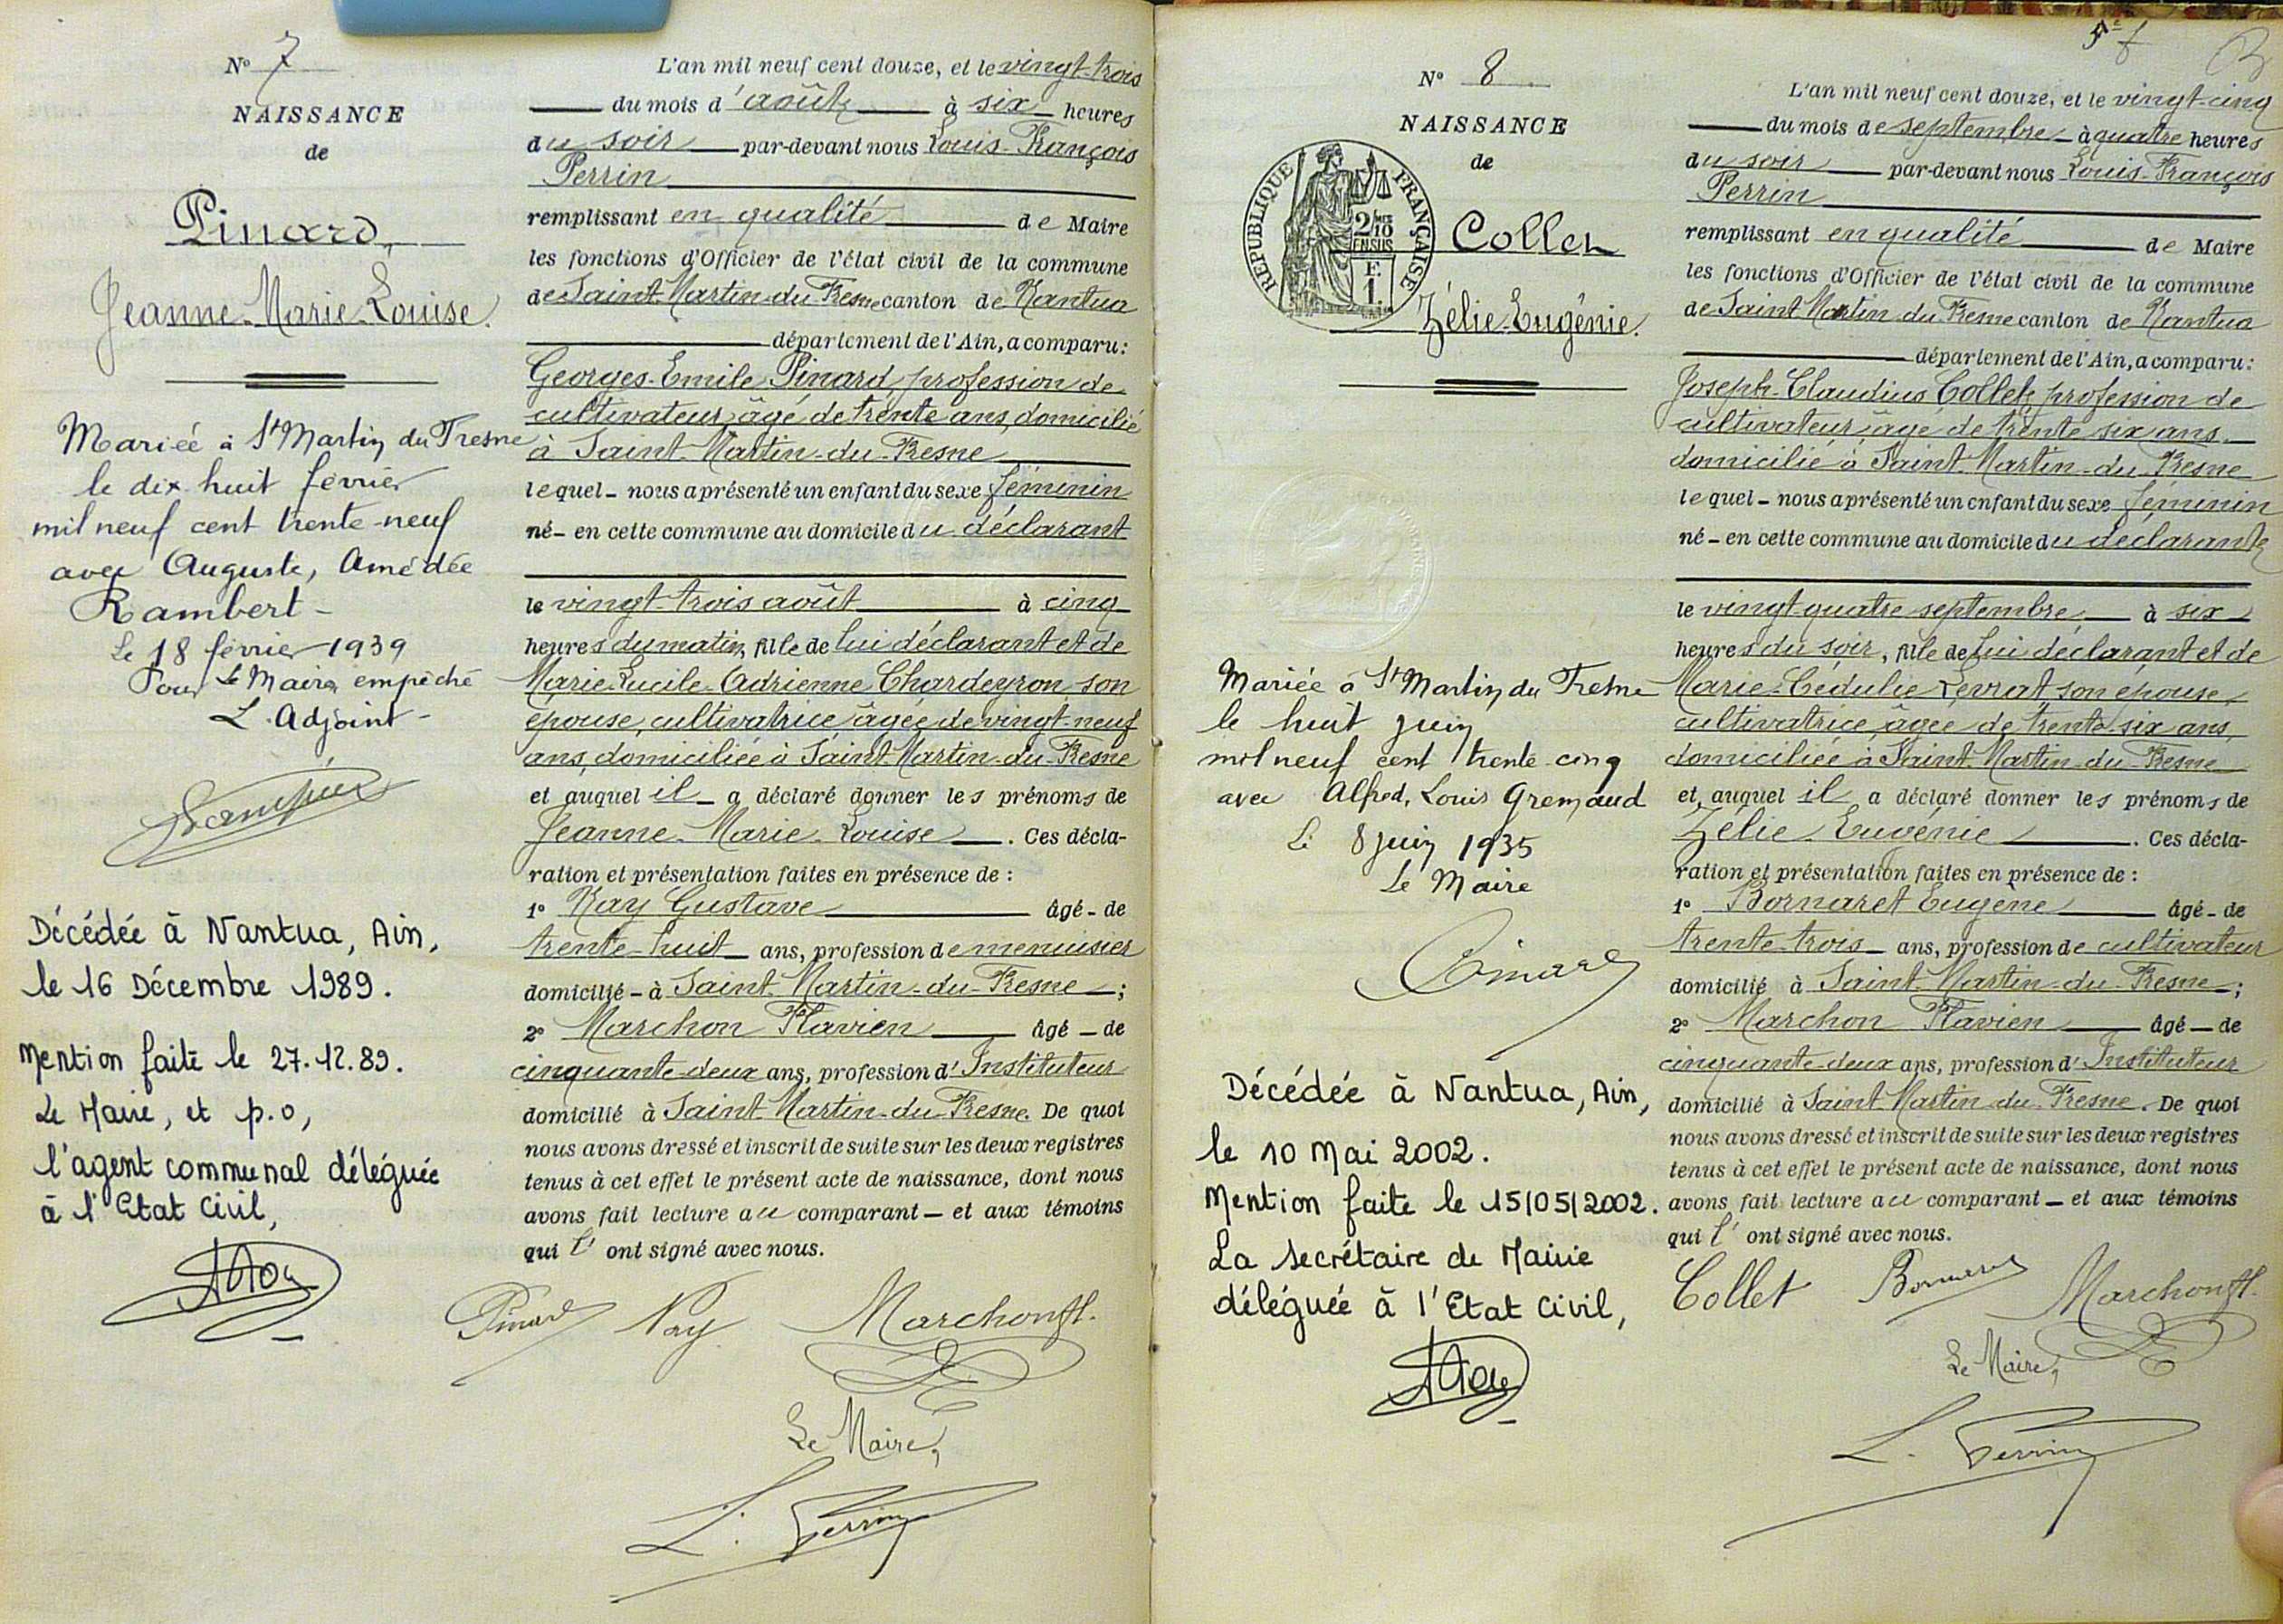 N° 7
NAISSANCE
de
Pinard,
Jeanne-Marie-Louise.
Mariée à St Martin du Fresne
le dix huit février
mil neuf cent trente-neuf
avec Auguste, Amédée
Rambert -
Le 18 février 1939
Pour Le Maire empêché
L'Adjoint -
Décédée à Nantua, Ain,
le 16 Décembre 1989.
Mention faite le 27.12.89.
Le Maire, et p.o,
l'agent communal déléguée
à l'Etat Civil,
L'an mil neuf cent douze, et le vingt-trois
du mois d'août à six heures
du soir par-devant nous Louis-François
Perrin
remplissant en qualité de Maire
les fonctions d'Officier de l'état civil de la commune
de Saint-Martin-du-Fresne canton de Nantua
département de l'Ain, a comparu :
Georges-Emile Pinard, profession de
cultivateur, âgé de trente ans, domicilié
à Saint-Martin-du-Fresne
lequel - nous a présenté un enfant du sexe féminin
né - en cette commune au domicile du déclarant
le vingt-trois août à cinq
heures du matin, fille de lui déclarant et de
Marie-Lucile-Adrienne Chardeyron son
épouse, cultivatrice âgée de vingt-neuf
ans, domiciliée à Saint-Martin-du-Fresne
et auquel il a déclaré donner les prénoms de
Jeanne-Marie-Louise. Ces décla-
ration et présentation faites en présence de :
1° Nay Gustave âgé - de
trente-huit ans, profession de menuisier
domicilié - à Saint-Martin-du-Fresne ;
2° Marchon Flavien âgé - de
cinquante-deux ans, profession d'Instituteur
domicilié à Saint-Martin-du-Fresne. De quoi
nous avons dressé et inscrit de suite sur les deux registres
tenus à cet effet le présent acte de naissance, dont nous
avons fait lecture au comparant - et aux témoins
qui l' ont signé avec nous.
Pinard Nay Marchon fl.
Le Maire,
L. Perrin
N° 8
NAISSANCE
de
RÉPUBLIQUE FRANÇAISE
2/10
EN SUS
F.
1.
Collet
Zélie-Eugénie.
Mariée à St Martin du Fresne
le huit juin
mil neuf cent trente-cinq
avec Alfred, Louis Gremaud
Le 8 juin 1935
Le Maire
Pinard
Décédée à Nantua, Ain,
le 10 Mai 2002.
Mention faite le 15/05/2002.
La secrétaire de Mairie
déléguée à l'Etat Civil,
L'an mil neuf cent douze, et le vingt-cinq
du mois de septembre à quatre heures
du soir par-devant nous Louis-François
Perrin
remplissant en qualité de Maire
les fonctions d'Officier de l'état civil de la commune
de Saint-Martin-du-Fresne canton de Nantua
département de l'Ain, a comparu :
Joseph-Claudius Collet, profession de
cultivateur, âgé de trente-six ans
domicilié à Saint-Martin-du-Fresne
lequel - nous a présenté un enfant du sexe féminin
né - en cette commune au domicile du déclarant
le vingt-quatre septembre à six
heures du soir, fille de lui déclarant et de
Marie-Cédulie Levrat son épouse,
cultivatrice, âgée de trente-six ans,
domiciliée à Saint-Martin-du-Fresne
et auquel il a déclaré donner les prénoms de
Zélie-Eugénie. Ces décla-
ration et présentation faites en présence de :
1° Bornaret Eugène âgé - de
trente-trois ans, profession de cultivateur
domicilié à Saint-Martin-du-Fresne ;
2° Marchon Flavien âgé - de
cinquante-deux ans, profession d'Instituteur
domicilié à Saint-Martin-du-Fresne. De quoi
nous avons dressé et inscrit de suite sur les deux registres
tenus à cet effet le présent acte de naissance, dont nous
avons fait lecture au comparant - et aux témoins
qui l' ont signé avec nous.
Collet Bornaret Marchon fl.
Le Maire,
L. Perrin